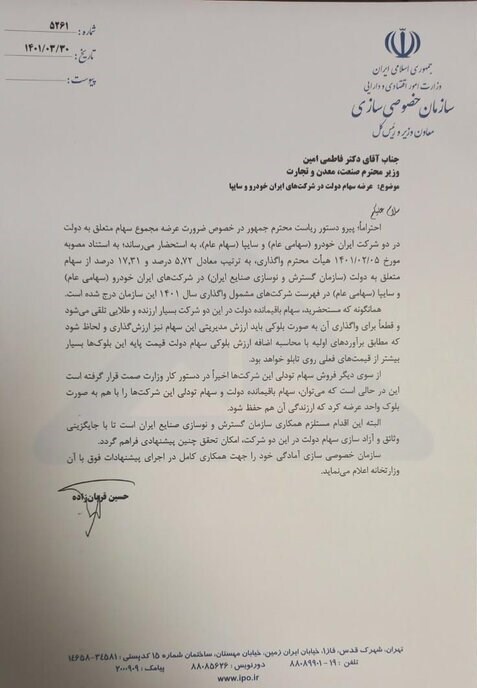 شماره: ۵۲۶۱
تاریخ: ۱۴۰۱/۰۳/۳۰
پیوست:
جمهوری اسلامی ایران
وزارت امور اقتصادی و دارایی
سازمان خصوصی سازی
معاون وزیر و رئیس کل
جناب آقای دکتر فاطمی امین
وزیر محترم صنعت، معدن و تجارت
موضوع: عرضه سهام دولت در شرکت‌های ایران خودرو و سایپا
سلام علیکم
احتراماً؛ پیرو دستور ریاست محترم جمهور در خصوص ضرورت عرضه مجموع سهام متعلق به دولت
در دو شرکت ایران خودرو (سهامی عام) و سایپا (سهام عام)، به استحضار می‌رساند؛ به استناد مصوبه
مورخ ۱۴۰۱/۰۲/۰۵ هیأت محترم واگذاری، به ترتیب معادل ۵,۷۲ درصد و ۱۷,۳۱ درصد از سهام
متعلق به دولت (سازمان گسترش و نوسازی صنایع ایران) در شرکت‌های ایران خودرو (سهامی عام) و
سایپا (سهامی عام) در فهرست شرکت‌های مشمول واگذاری سال ۱۴۰۱ این سازمان درج شده است.
همانگونه که مستحضرید، سهام باقیمانده دولت در این دو شرکت بسیار ارزنده و طلایی تلقی می‌شود
و قطعاً برای واگذاری آن به صورت بلوکی باید ارزش مدیریتی این سهام نیز ارزش‌گذاری و لحاظ شود
که مطابق برآوردهای اولیه با محاسبه اضافه ارزش بلوکی سهام دولت قیمت پایه این بلوک‌ها بسیار
بیشتر از قیمت‌های فعلی روی تابلو خواهد بود.
از سوی دیگر فروش سهام تودلی این شرکت‌ها اخیراً در دستور کار وزارت صمت قرار گرفته است
این در حالی است که می‌توان، سهام باقیمانده دولت و سهام تودلی این شرکت‌ها را با هم به صورت
بلوک واحد عرضه کرد که ارزندگی آن هم حفظ شود.
البته این اقدام مستلزم همکاری سازمان گسترش و نوسازی صنایع ایران است تا با جایگزینی
وثائق و آزاد سازی سهام دولت در این دو شرکت، امکان تحقق چنین پیشنهادی فراهم گردد.
سازمان خصوصی سازی آمادگی خود را جهت همکاری کامل در اجرای پیشنهادات فوق با آن
وزارتخانه اعلام می‌نماید.
حسین قربان‌زاده
تهران، شهرک قدس، فاز۱، خیابان ایران زمین، خیابان مهستان، ساختمان شماره ۱۵ کدپستی: ۳۴۵۸۱-۱۴۶۵۸
تلفن: ۱۹-۸۸۰۸۹۹۰۱ دورنویس: ۸۸۰۸۵۶۲۶ پیامک: ۲۰۰۰۹۰۹
www.ipo.ir